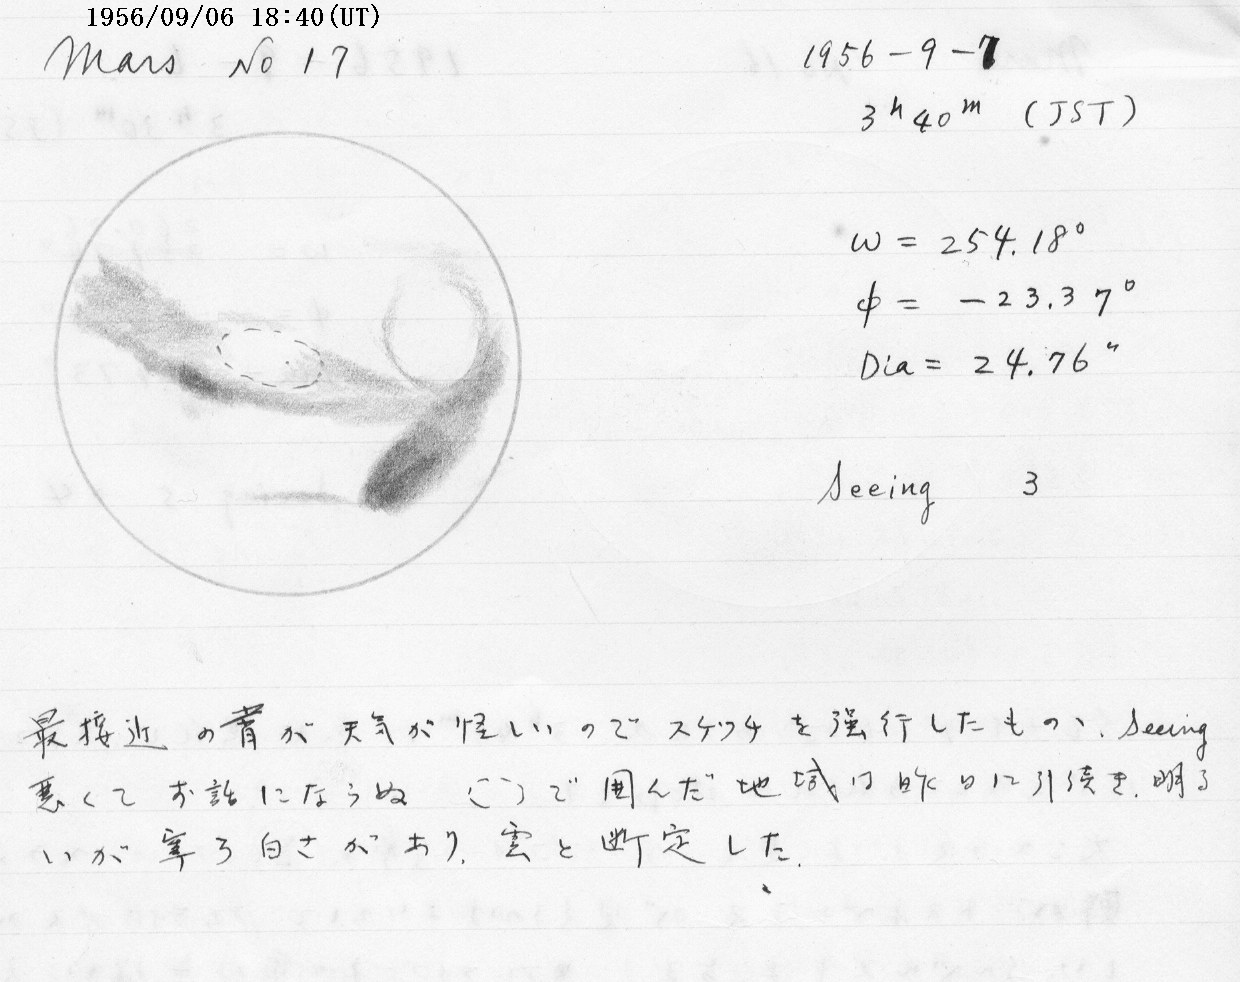 1956/09/06 18:40(UT)
Mars No 17
1956-9-7
3h40m (JST)
ω = 254.18°
φ = -23.37°
Dia = 24.76"
Seeing 3
最接近の宵が天気が怪しいのでスケッチを強行したもの、Seeing
悪くてお話にならぬ で囲んだ地域は昨日に引続き、明る
いが寧ろ白さがあり、雲と断定した.